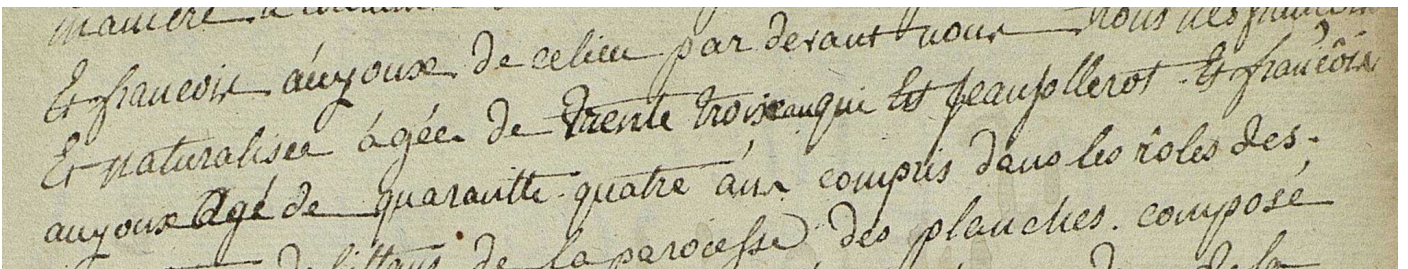 manière
Et francois auyoux de celieu par devant nous nous nes
Et naturalisés agées de trente trois ans qui Est jean jollerot Et francois
auyoux agé de quarantte quatre ans compris dans les rôles des
de la paroesse des planches. composé
de la